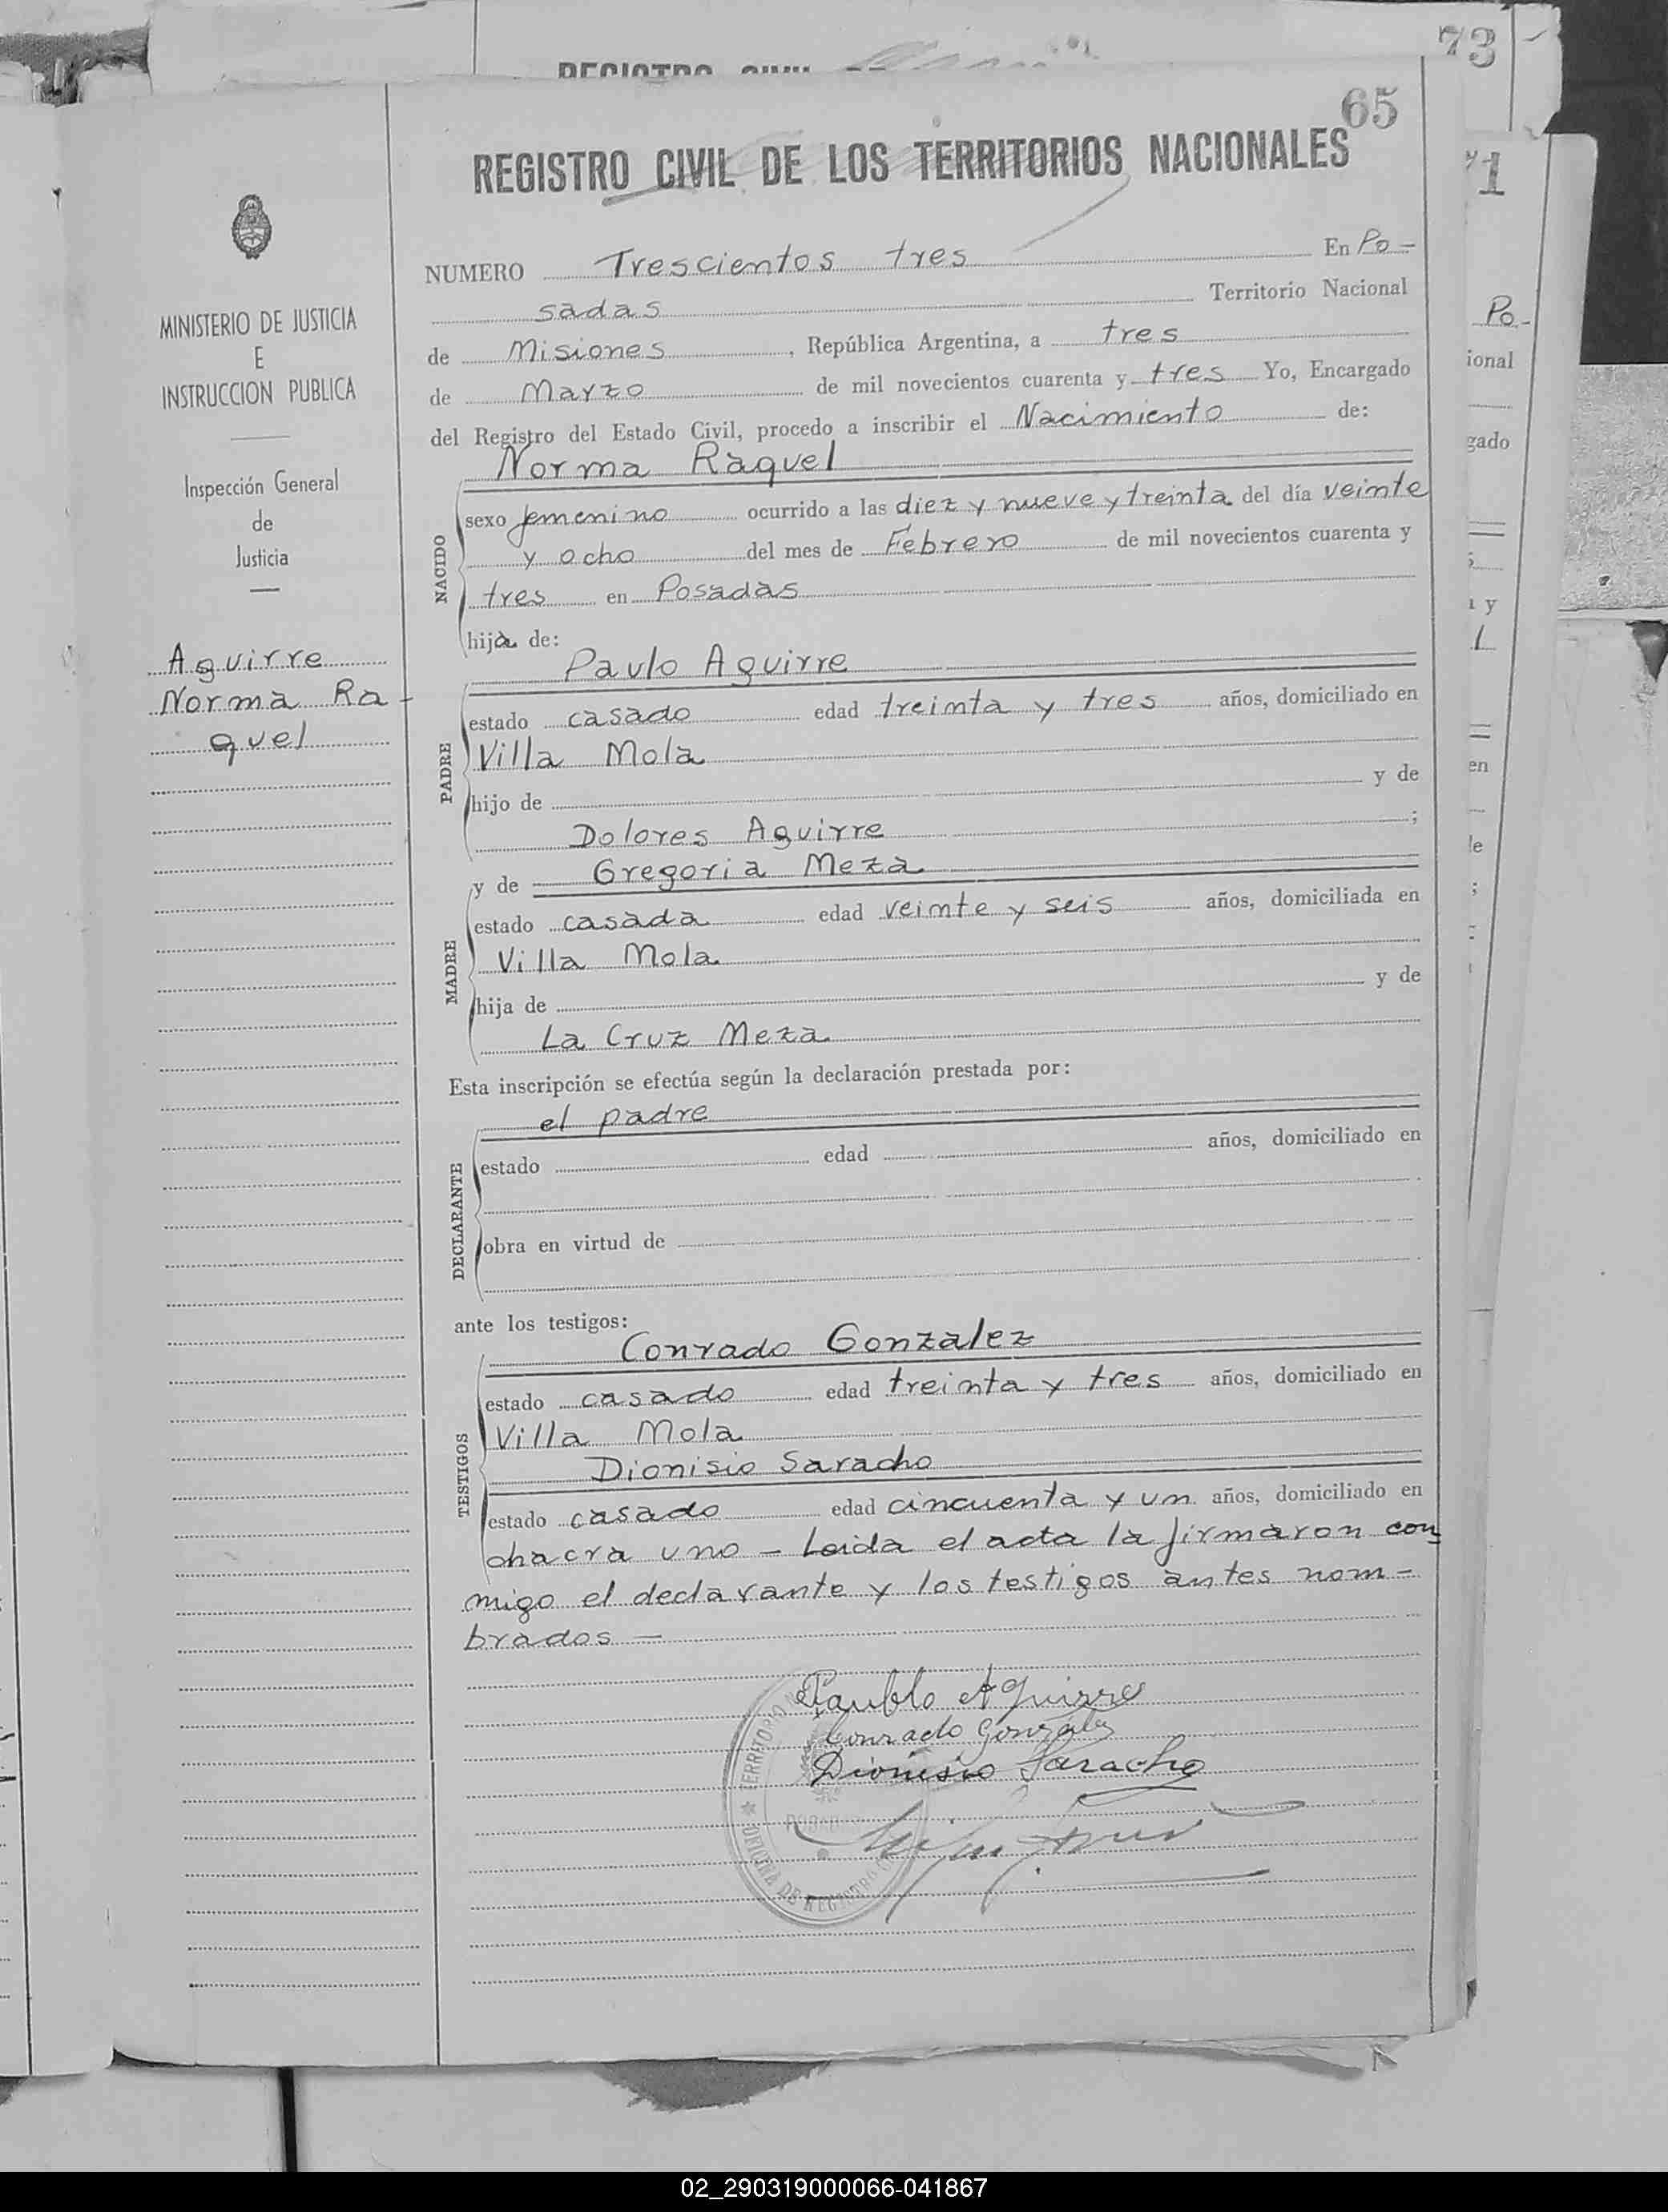 73
REGISTRO CIVIL
65
REGISTRO CIVIL DE LOS TERRITORIOS NACIONALES
71
MINISTERIO DE JUSTICIA
E
INSTRUCCION PUBLICA
Inspección General
de
Justicia
Aguirre
Norma Ra-
quel
NUMERO Trescientos tres En Po-
sadas Territorio Nacional
de Misiones, República Argentina, a tres
de Marzo de mil novecientos cuarenta y tres Yo, Encargado
del Registro del Estado Civil, procedo a inscribir el Nacimiento de:
Norma Raquel
NACIDO
sexo femenino ocurrido a las diez y nueve y treinta del día veinte
y ocho del mes de Febrero de mil novecientos cuarenta y
tres en Posadas
hija de:
Paulo Aguirre
PADRE
estado casado edad treinta y tres años, domiciliado en
Villa Mola
hijo de y de
Dolores Aguirre ;
y de Gregoria Meza
MADRE
estado casada edad veinte y seis años, domiciliada en
Villa Mola
hija de y de
La Cruz Meza
Esta inscripción se efectúa según la declaración prestada por:
el padre
DECLARANTE
estado edad años, domiciliado en
obra en virtud de
ante los testigos:
Conrado Gonzalez
TESTIGOS
estado casado edad treinta y tres años, domiciliado en
Villa Mola
Dionisio Saracho
estado casado edad cincuenta y un años, domiciliado en
chacra uno - Leida el acta la firmaron con
migo el declarante y los testigos antes nom-
brados -
Paublo Aguirre
Conrado Gonzalez
Dionisio Saracho
TERRITORIO
OFICINA DE REGISTRO
Po-
ional
gado
en
02_290319000066-041867